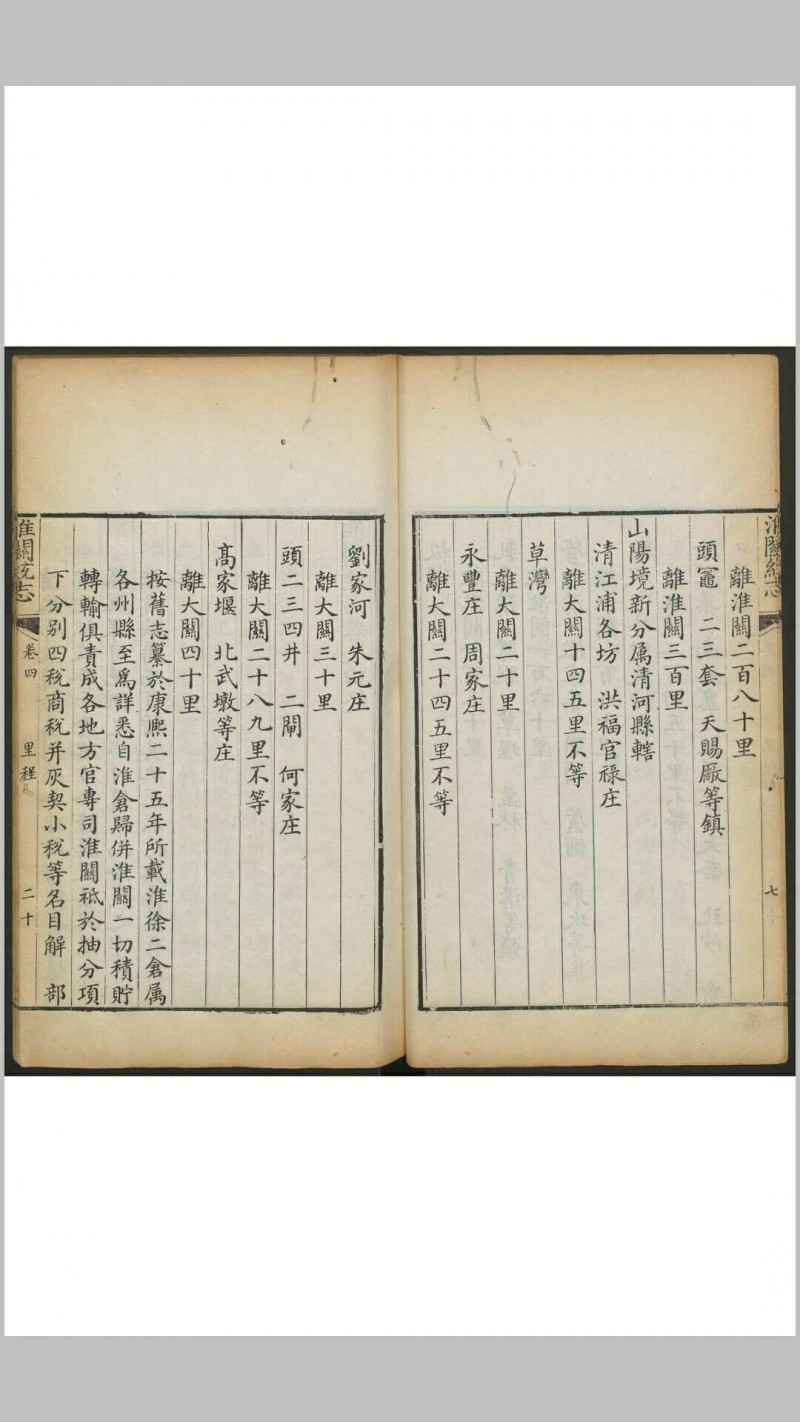 離淮關二百八十里
頭竈　二三套　天賜厰等鎮
離淮關三百里
山陽境新分属清河縣轄
清江浦各坊　洪福官禄庄
離大關十四五里不等
草灣
離大關二十里
永豐庄　周家庄
離大關二十四五里不等
七
劉家河　朱元庄
離大關三十里
頭二三四井　二閘　何家庄
離大關二十八九里不等
高家堰　北武墩等庄
離大關四十里
按舊志纂於康熙二十五年所載淮徐二倉属
各州縣至爲詳悉自淮倉歸併淮關一切積貯
轉輸俱責成各地方官專司淮關祗於抽分項
下分別四税商税并灰契小税等名目解　部
淮關統志　卷四　里程　二十